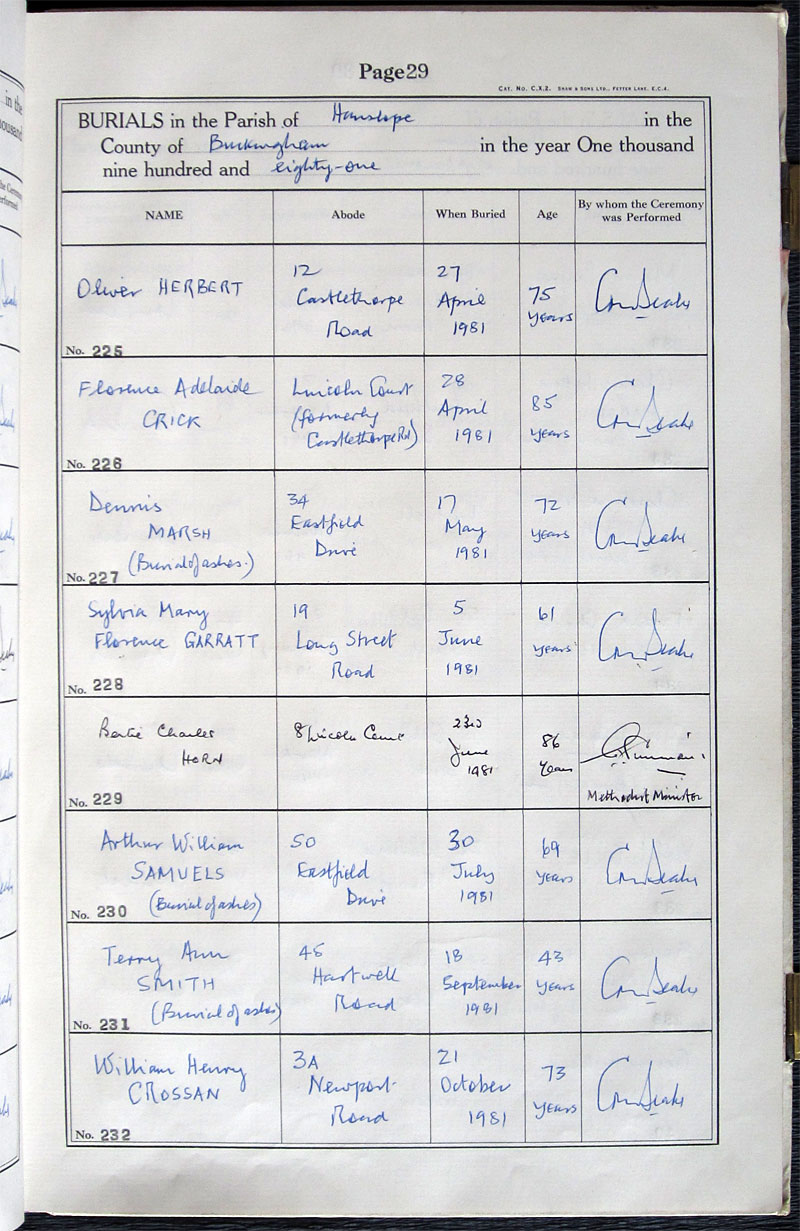 Page 29
CAT. NO. C.X.2. SHAW & SONS LTD., FETTER LANE, E.C.4.
BURIALS in the Parish of Hanslope in the
County of Buckingham in the year One thousand
nine hundred and eighty-one
NAME Abode When Buried Age By whom the Ceremony was Performed
Oliver HERBERT
12
Castlethorpe
Road
27
April
1981
75
years
No. 225
Florence Adelaide
CRICK
Lincoln Court
(formerly
Castlethorpe Rd)
28
April
1981
85
years
No. 226
Dennis
MARSH
(Burial of ashes.)
34
Eastfield
Drive
17
May
1981
72
years
No. 227
Sylvia Mary
Florence GARRATT
19
Long Street
Road
5
June
1981
61
years
No. 228
Bertie Charles
HORN
8 Lincoln Court
23rd
June
1981
86
Years
Methodist Minister
No. 229
Arthur William
SAMUELS
(Burial of ashes)
50
Eastfield
Drive
30
July
1981
69
years
No. 230
Terry Ann
SMITH
(Burial of ashes)
45
Hartwell
Road
18
September
1981
43
years
No. 231
William Henry
CROSSAN
3A
Newport
Road
21
October
1981
73
years
No. 232